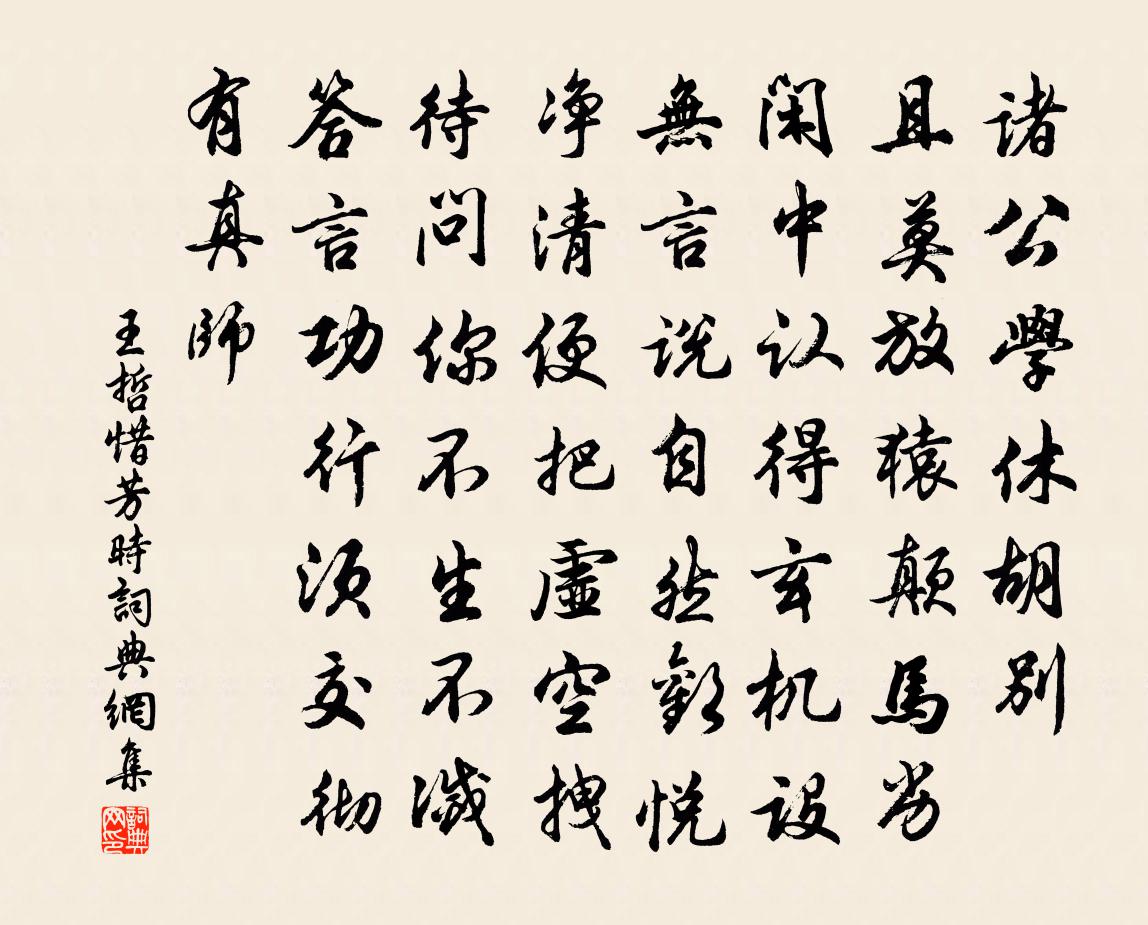 诸公學休胡别
且莫放猿颠馬劣
閑中认得玄机設
無言说自然歡悦
净清便把虚空拽
待問你不生不滅
答言功行须交彻
有真師
王哲惜芳時詞典網集
詞典网印